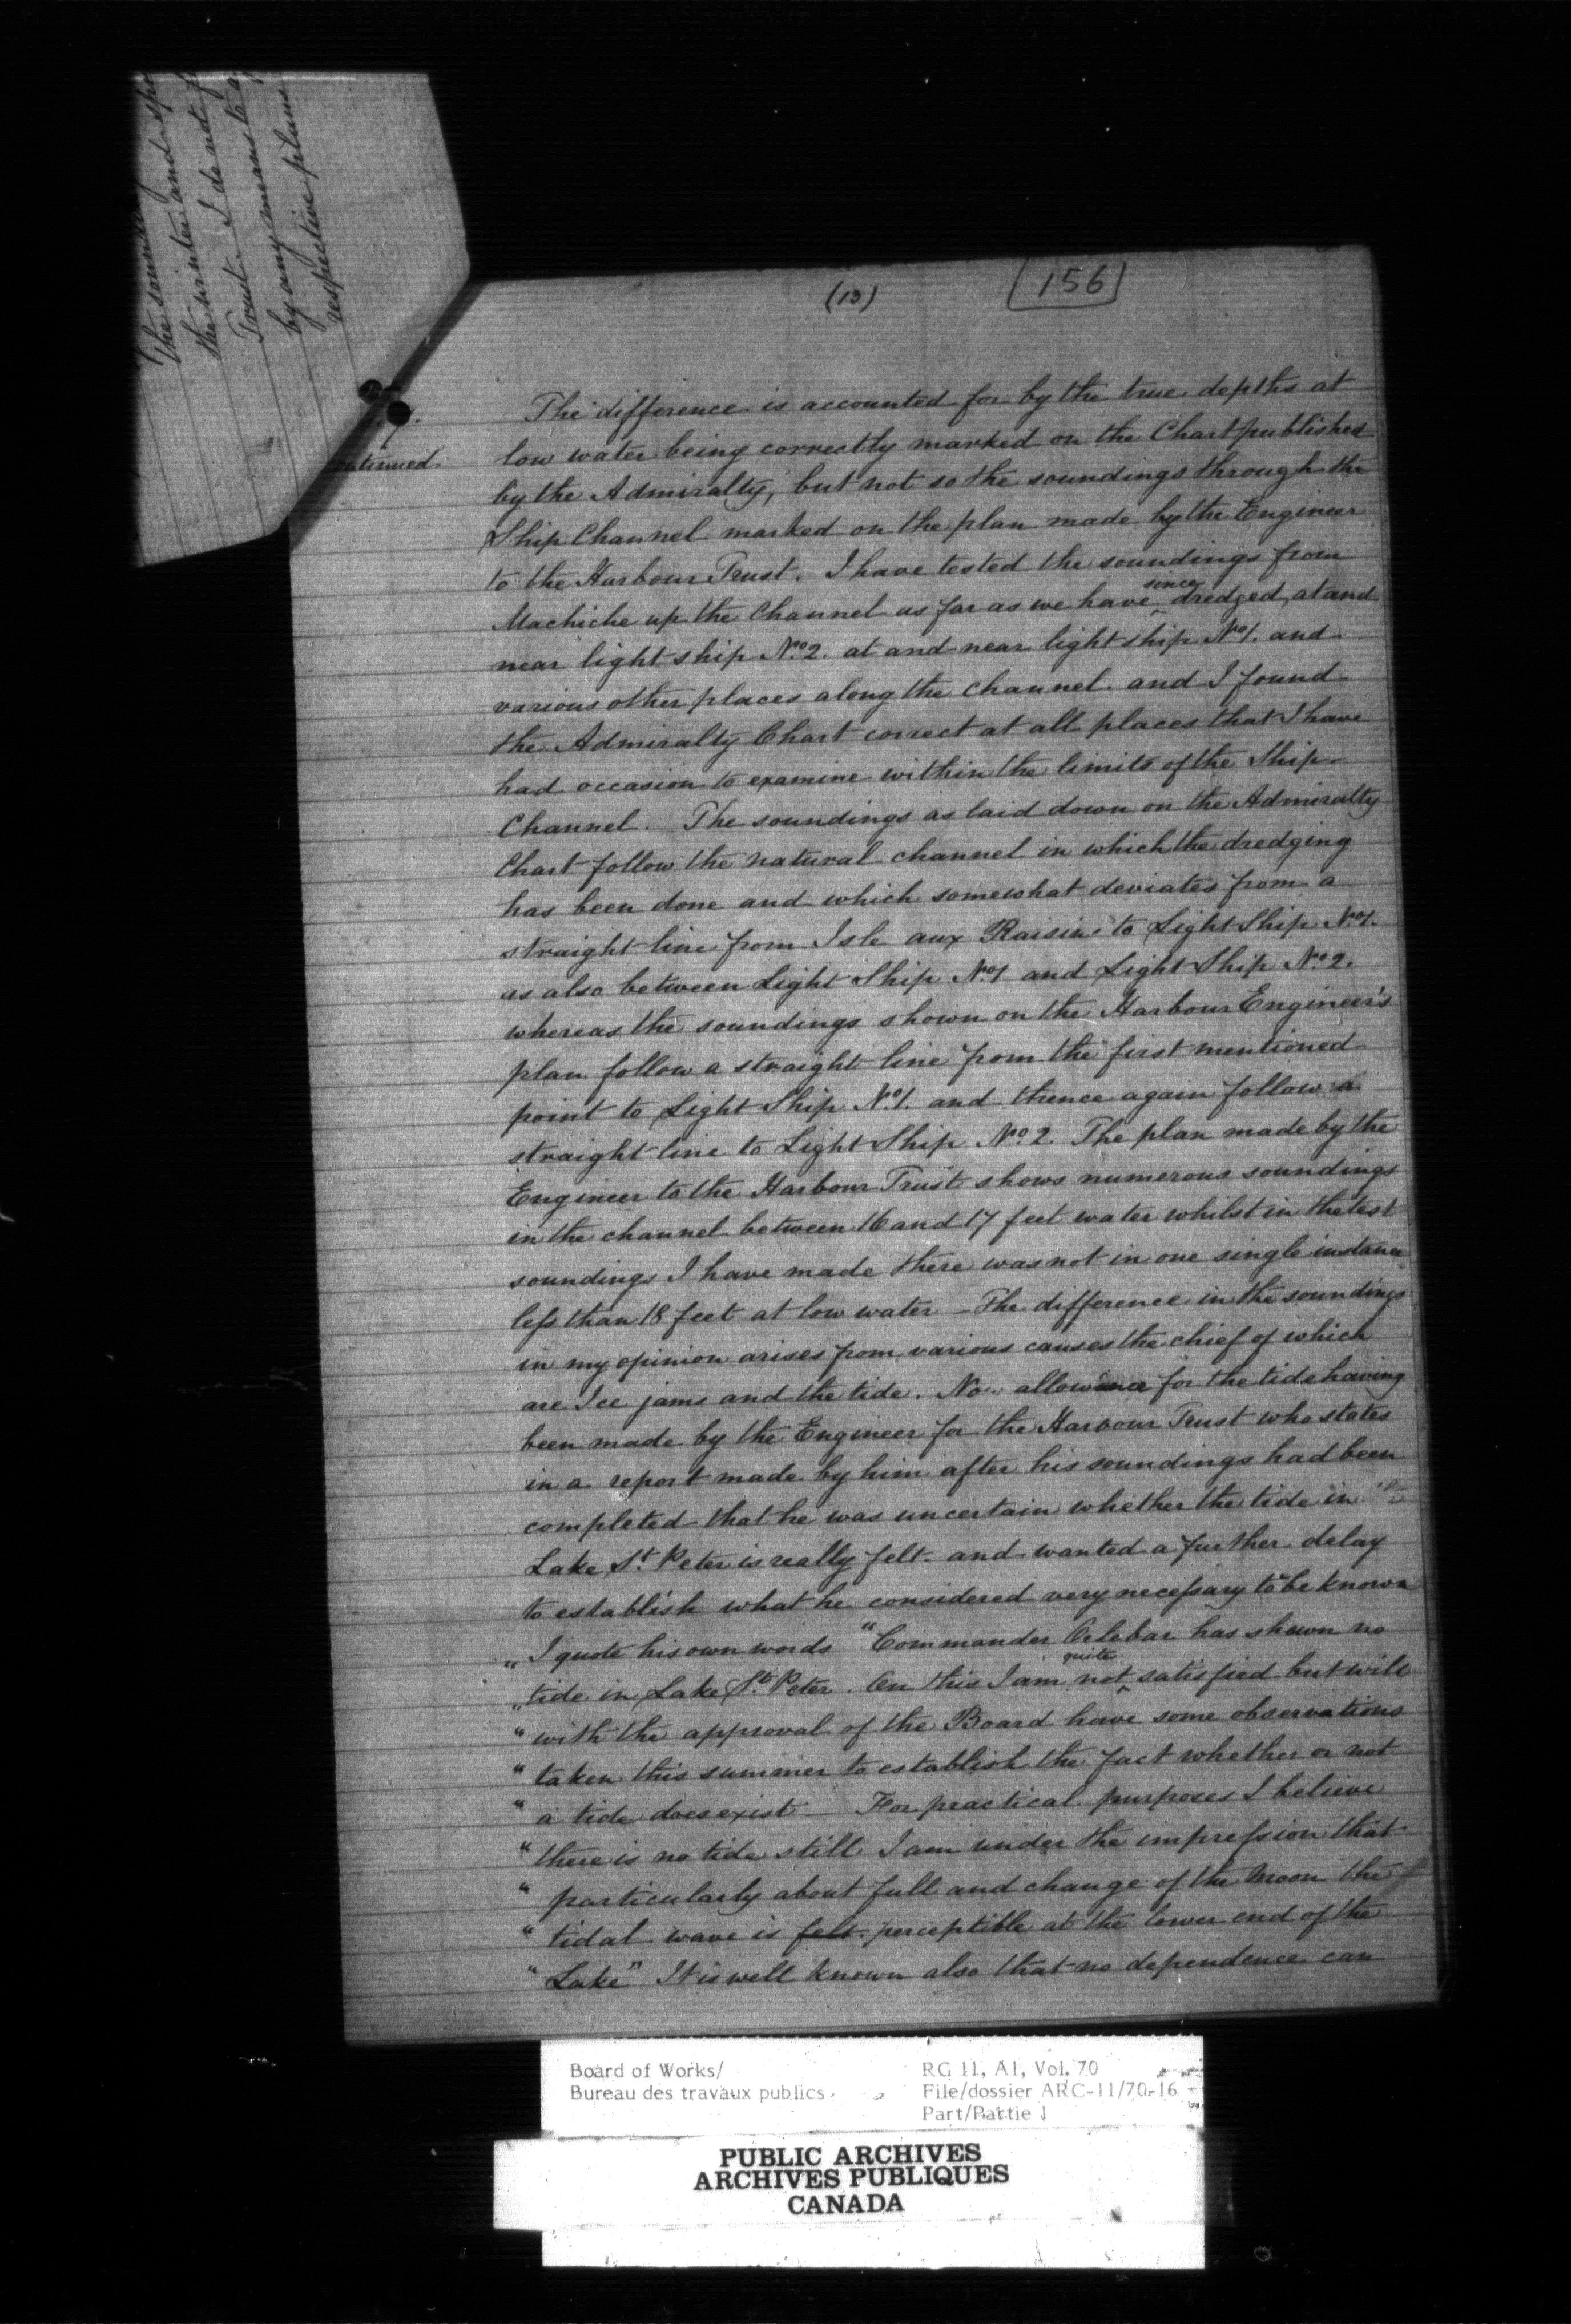 The sounding
the winter and
Trust. I do not
by any means to a
respective plans
(13)
156
7.
The difference is accounted for by the true depths at
low water being correctly marked on the Chart published
by the Admiralty, but not so the soundings through the
Ship Channel marked on the plan made by the Engineer
to the Harbour Trust. I have tested the soundings from
Machiche up the Channel as far as we have since dredged, at and
near light ship No. 2. at and near light ship No 1. and
various other places along the channel. and I found
the Admiralty Chart correct at all places that I have
had occasion to examine within the limits of the Ship
Channel. The soundings as laid down on the Admiralty
Chart follow the natural channel in which the dredging
has been done and which somewhat deviates from a
straight line from Isle aux Raisins to Light Ship No 1.
as also between Light Ship No 1 and Light Ship No 2.
whereas the soundings shown on the Harbour Engineer's
plan follow a straight line from the first mentioned
point to Light Ship No 1. and thence again follow a
straight line to Light Ship No. 2. The plan made by the
Engineer to the Harbour Trust shows numerous soundings
in the channel between 16 and 17 feet water whilst in the test
soundings I have made there was not in one single instance
less than 18 feet at low water – The difference in the soundings
in my opinion arises from various causes the chief of which
are Ice jams and the tide. No allowance for the tide having
been made by the Engineer for the Harbour Trust who states
in a report made by him after his soundings had been
completed that he was uncertain whether the tide in
Lake St. Peter is really felt and wanted a further delay
to establish what he considered very necessary to be known
„ I quote his own words "Commander Orlebar has shewn no
„ tide in Lake St. Peter. On this I am not quite satisfied but will
" with the approval of the Board have some observations
" taken this summer to establish the fact whether or not
" a tide does exist – For practical purposes I believe
" there is no tide still I am under the impression that
" particularly about full and change of the Moon the
" tidal wave is felt perceptible at the lower end of the
" Lake" It is well known also that no dependence can
Board of Works/
Bureau des travaux publics
RG 11, A1, Vol. 70
File/dossier ARC-11/70-16
Part/Partie 1
PUBLIC ARCHIVES
ARCHIVES PUBLIQUES
CANADA